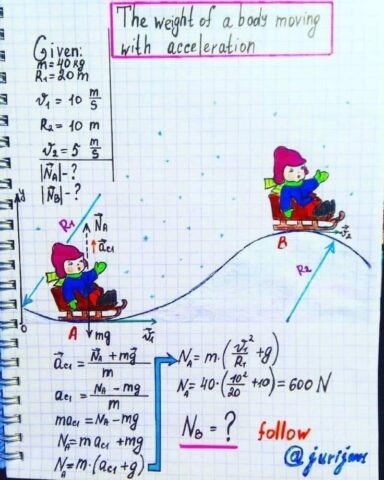 The weight of a body moving
with acceleration
Given:
m = 40 kg
R₁ = 20 m
v₁ = 10 m/s
R₂ = 10 m
v₂ = 5 m/s
|N⃗_A| - ?
|N⃗_B| - ?
y
R₁
N⃗_A
a⃗_c1
B
v⃗₂
R₂
0
A
mg
v⃗₁
a⃗_c1 = (N⃗_A + mg⃗)/m
a_c1 = (N_A - mg)/m
ma_c1 = N_A - mg
N_A = ma_c1 + mg
N_A = m·(a_c1 + g)
N_A = m·(v₁²/R₁ + g)
N_A = 40·(10²/20 + 10) = 600 N
N_B = ?
follow
@jurijans